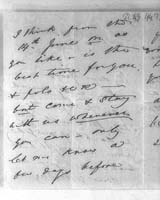 I think from the
14th June on as
you like is the
best time for you
& polo & OR —
but come & stay
with us whenever
you can — only
let me know a
few days before